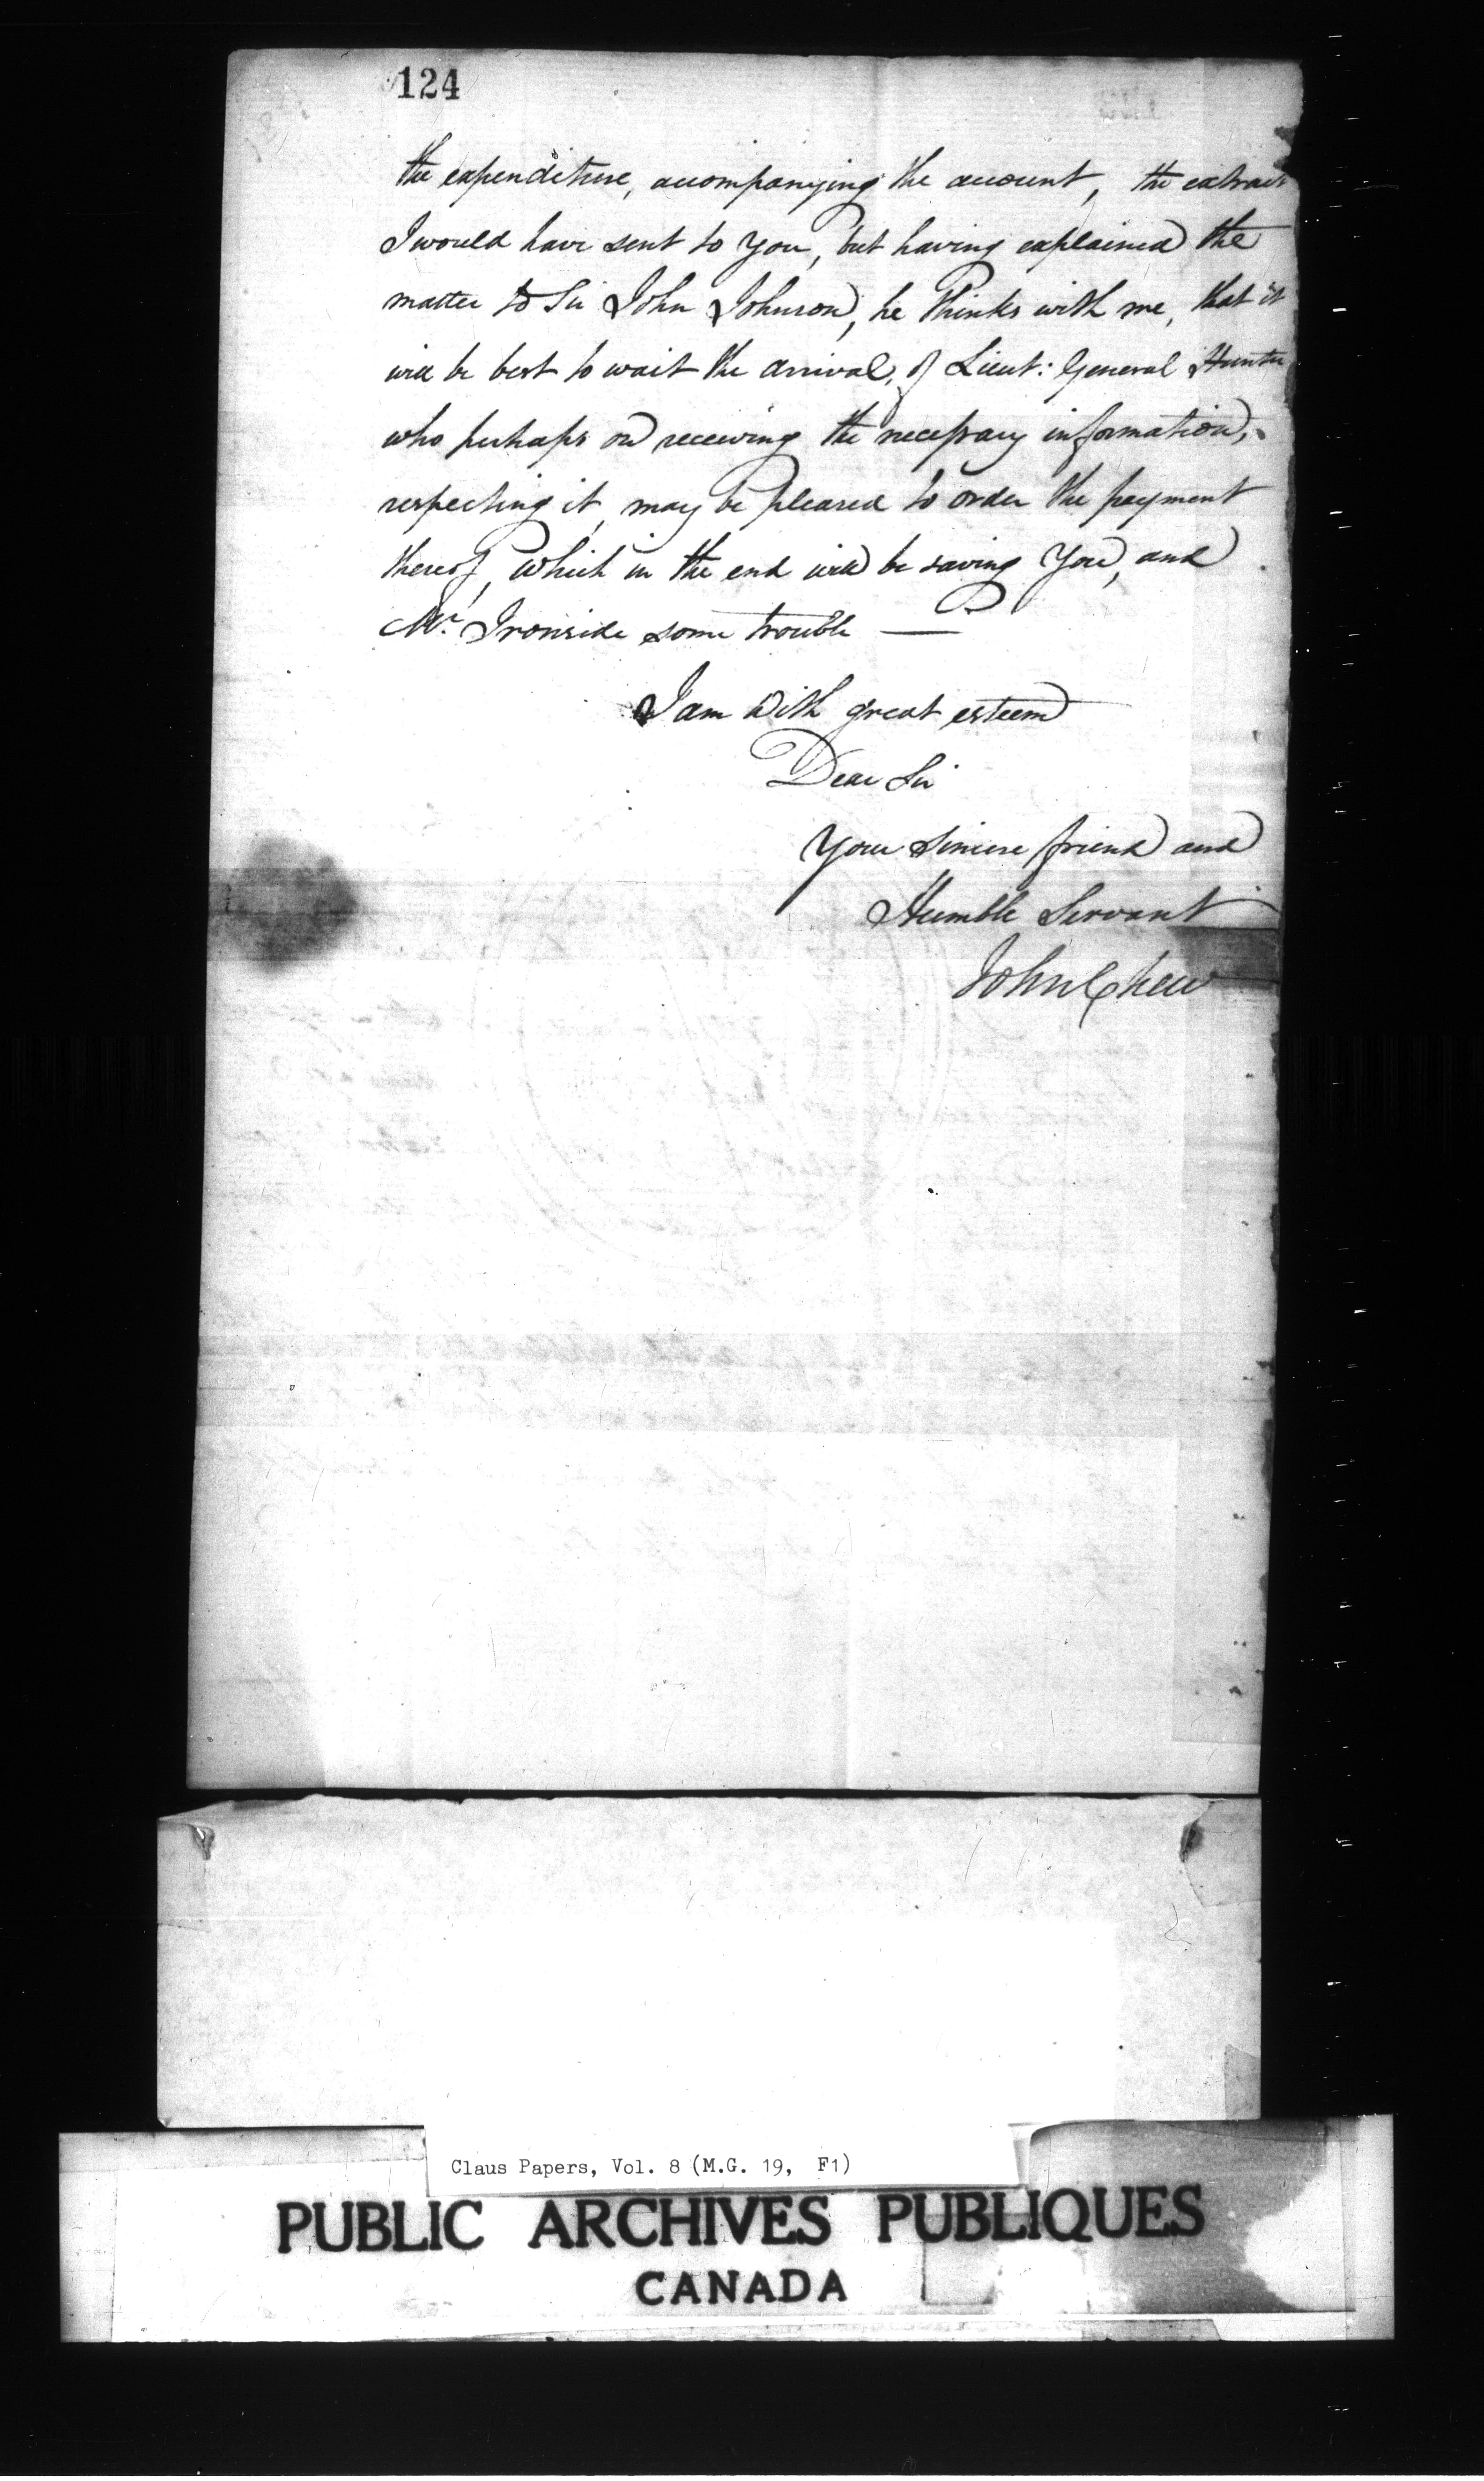 124
the expenditure, accompanying the account, the extract
I would have sent to you, but having explained the
matter to Sir John Johnson, he thinks with me, that it
will be best to wait the arrival, of Lieut: General Hunter
who perhaps on receiving the necessary information,
respecting it, may be pleased to order the payment
thereof, which in the end will be saving You, and
Mr. Ironside some trouble —
I am with great esteem
Dear Sir
Your sincere friend and
Humble Servant
John Chew
Claus Papers, Vol. 8 (M.G. 19, F1)
PUBLIC ARCHIVES PUBLIQUES
CANADA